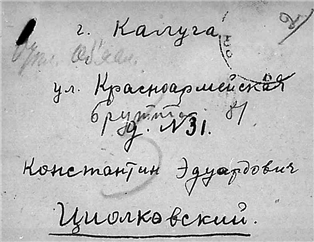 г. Калуга
ул. Красноармейская
брутто 81
д. N 31.
Константин Эдуардович
Циолковский.